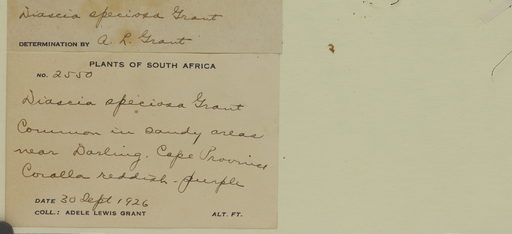 Diascia speciosa Grant
DETERMINATION BY A. L. Grant
PLANTS OF SOUTH AFRICA
NO. 2550
Diascia speciosa Grant
Common in sandy areas
near Darling. Cape Province
Corolla reddish-purple
DATE 30 Sept 1926
COLL.: ADELE LEWIS GRANT ALT. FT.